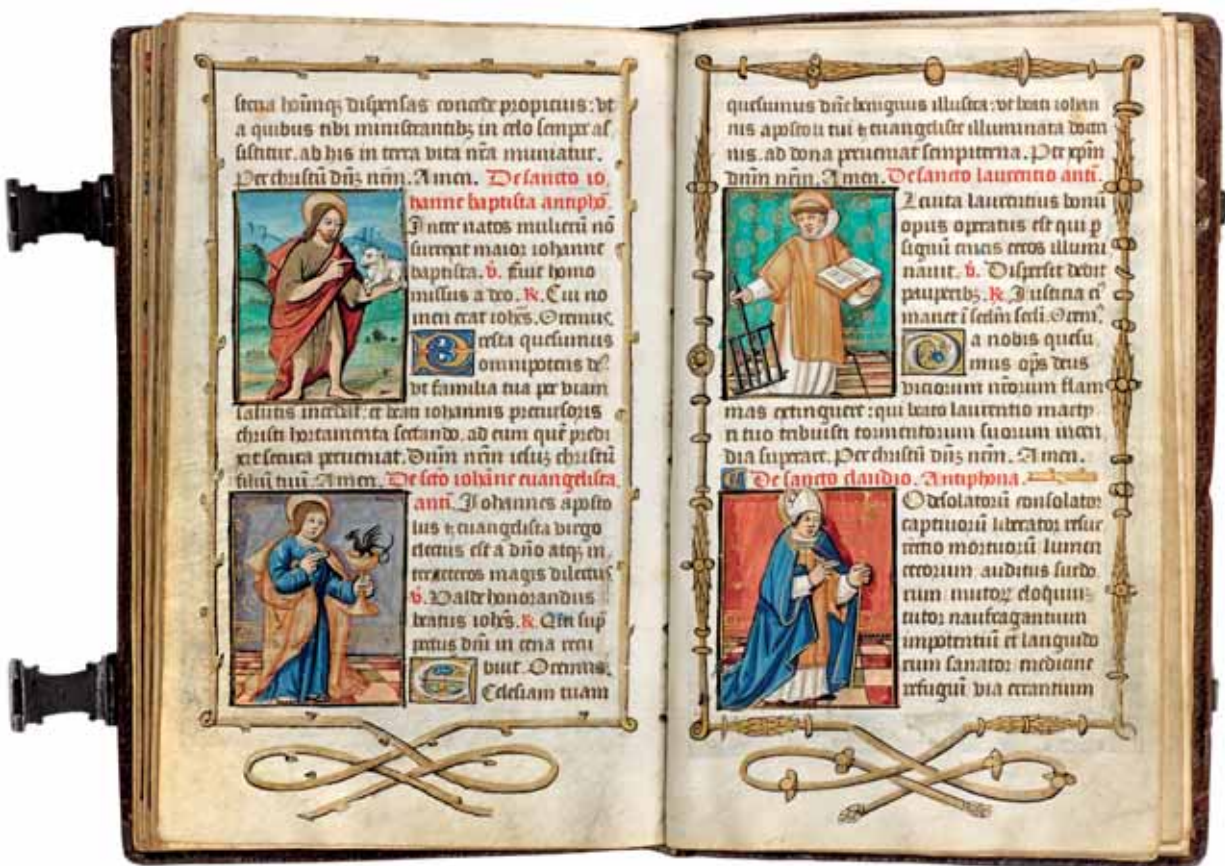 secra hoīmq̄ dispensas concede propicius: vt
a quibus tibi ministrantibȝ in celo semper as
sistitur. ab his in terra vita nr̄a muniatur.
Per christū dn̄ȝ nr̄m. Amen. De sancto io
hanne baptista antiphō.
Inter natos mulierū nō
surrexit maior iohanne
baptista. v̄. Fuit homo
missus a deo. ℟. Cui no
men erat iohēs. Oremus.
Presta quesumus
omnipotens de9
vt familia tua per viam
salutis incedat: et beati iohannis precursoris
christi hortamenta sectando. ad eum quē predi
xit secura perueniat. Dn̄m nr̄m iesuȝ christū
filiū tuū. Amen. De sctō iohāne euangelista.
antī. Iohannes aposto
lus ⁊ euangelista virgo
electus est a dn̄o atqȝ in
ter ceteros magis dilectus
v̄. Valde honorandus
beatus iohēs. ℟. Qui sup̄
pectus dn̄i in cena recu
buit. Oremus.
Ecclesiam tuam
quesumus dn̄e benignus illustra: vt beati iohan
nis apostoli tui ⁊ euangeliste illuminata doctri
nis. ad dona perueniat sempiterna. Per xp̄m
dnm̄ nr̄m. Amen. De sancto laurentio antī.
Leuita laurentius bonū
opus operatus est qui p̄
signū crucis cecos illumi
nauit. v̄. Dispersit dedit
pauperibȝ. ℟. Iusticia ei9
manet ī seclm̄ secli. Orem9
Da nobis quesu
mus op̄s deus
viciorum nr̄orum flam
mas extinguere: qui beato laurentio marty
ri tuo tribuisti tormentorum suorum incen
dia superare. Per christū dn̄ȝ nr̄m. Amen.
De sancto claudio. Antiphona.
O desolatorū consolator
captiuorū liberator resur
rectio mortuorū lumen
cecorum auditus surdo
rum mutoꝝ eloquiū
tutor naufragantium
impotentiū et languido
rum sanator medicine
refugiū via errantium